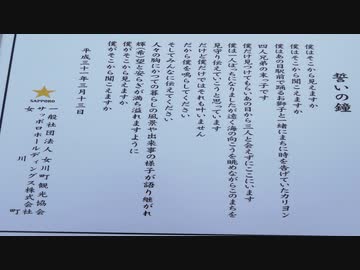 誓いの鐘
僕はそこから見えますか
僕はそこから聞こえますか
僕はあの日駅前で踊るお獅子と一緒にまちに時を告げていたカリヨン
四人兄弟の末っ子です
僕だけ見つけてもらいあの日から三人と会えずにここにいます
僕は一人ぼっちになりましたが遠く海の向こうを眺めながらこのまちを
見守り伝えていこうと思っています
だけど僕だけではそれも叶いません
だから僕を鳴らしてください
そしてみんなに伝えてください
人々の胸にかつての暮らしの風景や出来事の様子が語り継がれ
輝く希望と安らぎが満ち溢れますように
僕がそこから見えますか
僕がそこから聞こえますか
平成三十一年三月十三日
SAPPORO
一般社団法人女川町観光協会
サッポロホールディングス株式会社
女川町